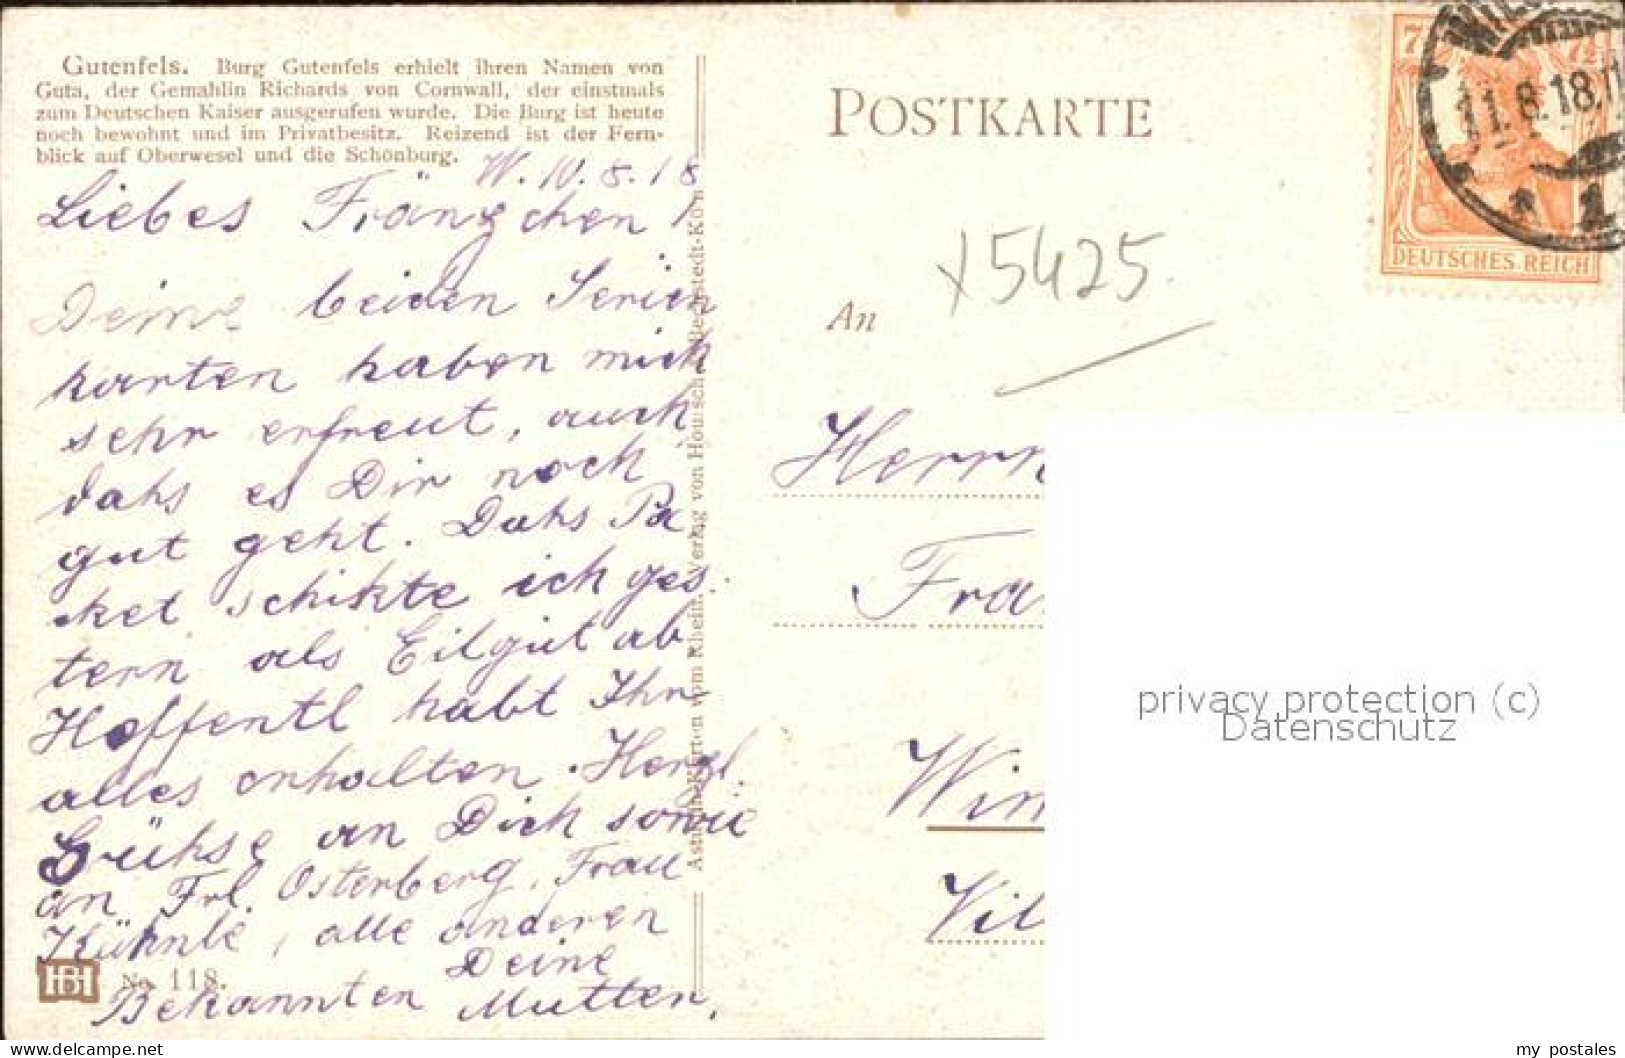 Gutenfels. Burg Gutenfels erhielt ihren Namen von
Guta, der Gemahlin Richards von Cornwall, der einstmals
zum Deutschen Kaiser ausgerufen wurde. Die Burg ist heute
noch bewohnt und im Privatbesitz. Reizend ist der Fern-
blick auf Oberwesel und die Schönburg.
W. 10. 8. 18
Liebes Fränzchen!
Deine beiden Serien
karten haben mich
sehr erfreut, auch
dahs es Dir noch
gut geht. Dahs Pa
ket schikte ich ges.
tern als Eilgut ab
Hoffentl habt Ihr
alles erhalten. Herzl.
Grühse an Dich sowie
an Frl. Osterberg, Frau
Kühnle, alle anderen
Deine
Bekannten Mutter.
HB No. 118.
von Hoursch
vom Rhein. Verlag
POSTKARTE
7½
11.8.18.
1
DEUTSCHES REICH
x5425.
An
Herrn
Fra
Win
Vil
privacy protection (c)
Datenschutz
www.delcampe.net
my_postales